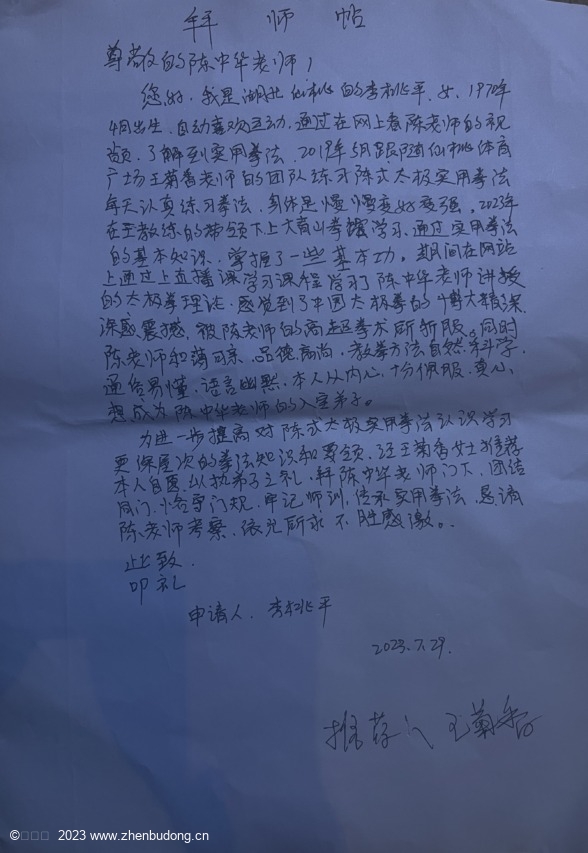 拜 师 帖
尊敬的陈中华老师！
您好，我是湖北仙桃的李桃平，女，1970年
4月出生，自幼喜欢运动，通过在网上看陈老师的视
频，了解到实用拳法，2019年5月跟随仙桃体育
广场王菊香老师的团队练习陈式太极实用拳法
每天认真练习拳法，身体是慢慢变好变强。2023年
在王教练的带领下上大青山学习，通过实用拳法
的基本知识，掌握了一些基本功。期间在网站
上通过上直播课学习课程学习了陈中华老师讲授
的太极拳理论，感觉到了中国太极拳的博大精深，
深感震撼，被陈老师的高超拳术所折服。同时
陈老师和蔼可亲，品德高尚，教拳方法自然科学，
通俗易懂，语言幽默，本人从内心十分佩服，真心
想成为陈中华老师的入室弟子。
为进一步提高对陈式太极实用拳法认识学习
更深层次的拳法知识和要领，经王菊香女士推荐
本人自愿以执弟子之礼，拜陈中华老师门下，团结
同门，恪守门规，牢记师训，传承实用拳法，恳请
陈老师考察，依允所求 不胜感激。
此致
叩礼
申请人：李桃平
2023.7.29.
推荐人 王菊香
© 2023 www.zhenbudong.cn